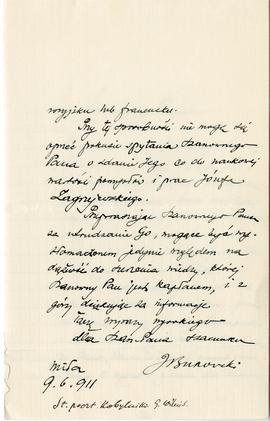 rosyjsku lub francusku.
Przy tej sposobności nie mogę się
oprzeć pokusie spytania Szanownego
Pana o zdanie Jego co do naukowej
wartości pomysłów i prac Józefa
Zagrajewskiego.
Przepraszając Szanownego Pana
za utrudzanie Go, mogące być
jedynie względem na
dążność do szerzenia wiedzy, której
Szanowny Pan jest kapłanem, i z
góry dziękując za informacje
łączę wyrazy wysokiego
dla Szan. Pana szacunku
J Bukowski
Miła
9.6.911
St. poczt. Kobylniki G. Wileń.